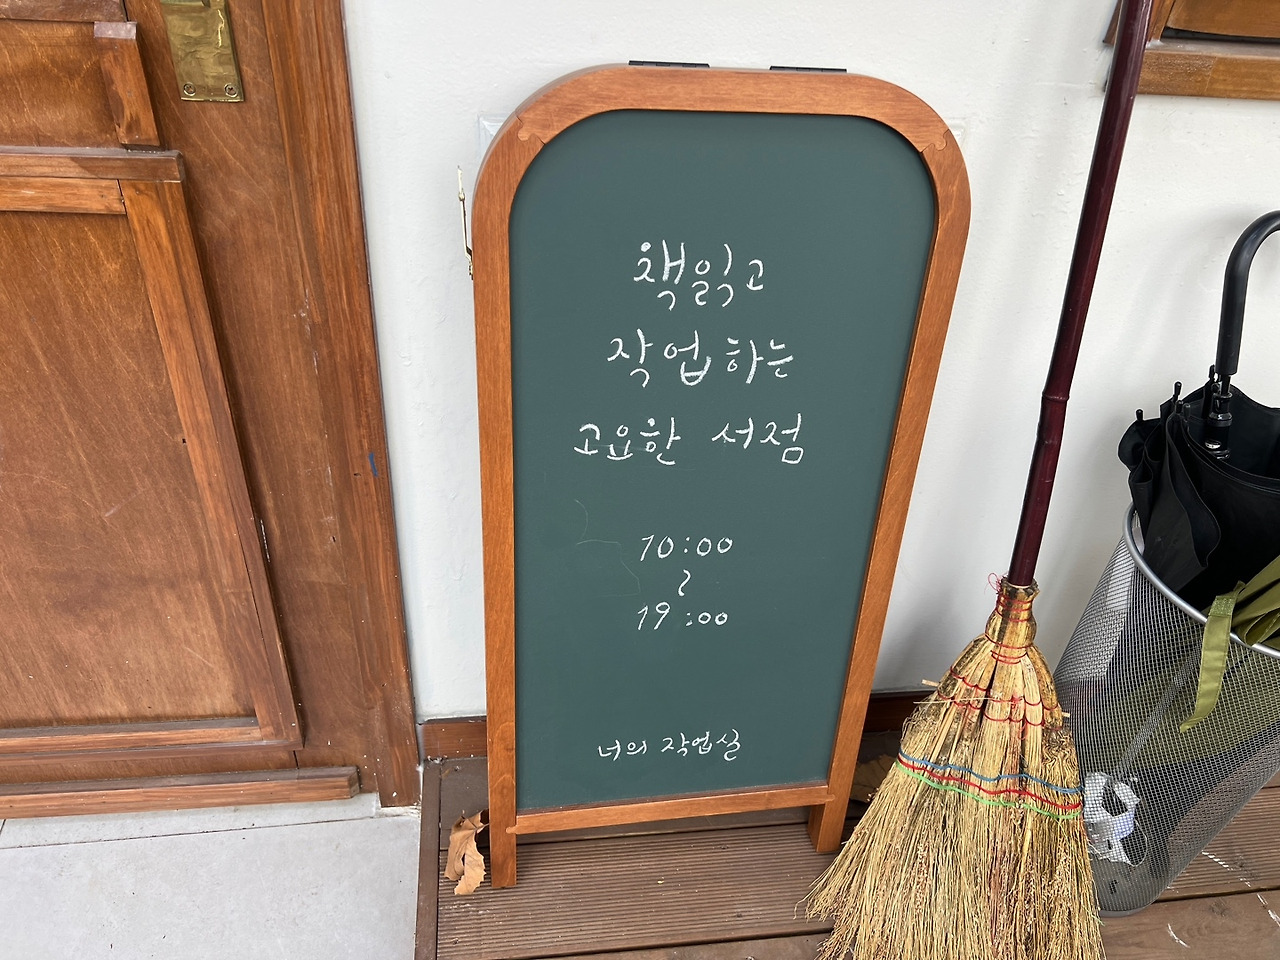 책읽고
작업하는
고요한 서점
10:00
~
19:00
너의 작업실